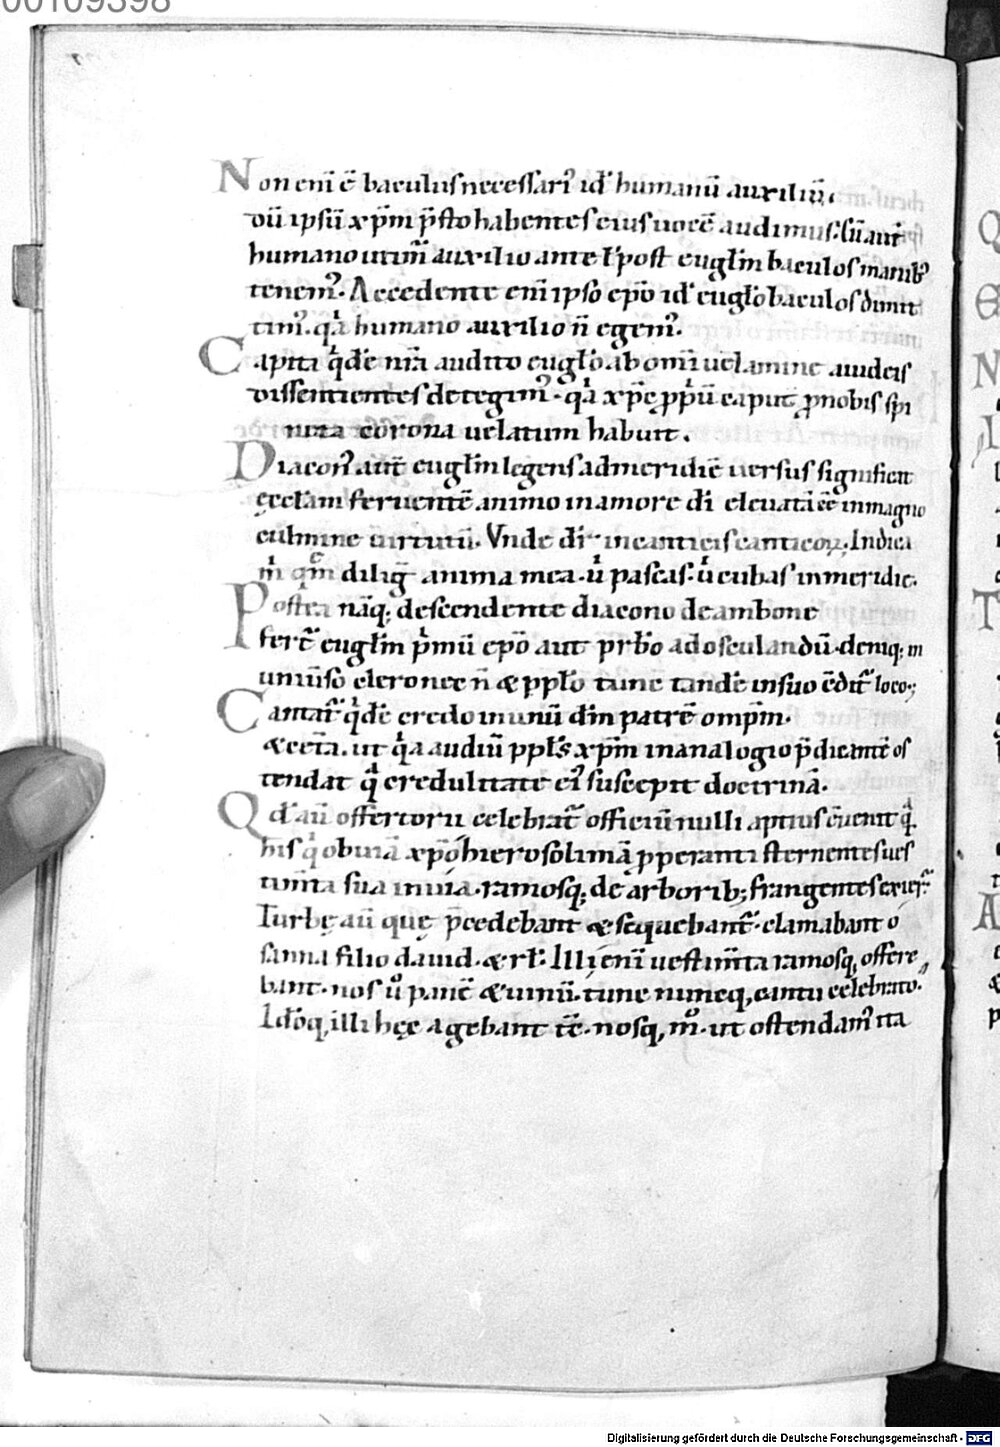 00109398
Non eni ē baculus necessari᷒ id ē humanū auxiliū.
dū ipsū xp̄m p̄sto habentes eius uocē audimus. sū aut̄
humano utim̄ auxilio ante t̄ post eugl̄m baculos manib᷒
tenem᷒. Accedente eni ipso ep̄o id ē eugl̄o baculos dimit
tim᷒. qͥa humano auxilio n̄ egem᷒.
Capita qͥdē nr̄a audito eugl̄o ab omi uelamine iudeis
dissentientes detegim᷒. qͥa xp̄c ꝓpriū caput ꝓ nobis spi
nuta corona uelatum habuit.
Diacon᷒ aut̄ eugl̄m legens ad meridiē uersus significat
ęccl̄am feruentē animo in amore dī eleuatā ēē in magno
culmine uirtutū. Vnde dr̄ in canticis canticoꝝ. Indica
m̄ quē diliḡ anima mea. uͥ pascas. uͥ cubas in meridie.
Postea nāq; descendente diacono de ambone
fert̄ eugl̄m pͥmū ep̄o aut pr̄bo ad osculandū. deniq; in
uniūso clero nec n̄ & ppl̄o tunc tandē in suo ēdit᷒ loco;
Cantat᷒ qͥdē credo in unū dm̄ patrē omp̄m.
& cet̄a. ut qͥa audiū ppl̄s xp̄m in analogio p̄dicantē os
tendat qͥ credulitate ei᷒ suscepit doctrinā.
Qd̄ aū offertorii celebrat᷒ officiū nulli aptius cūenit qͣ
his qͥ obuiā xp̄o hierosolimā ꝓperanti sternentes ues
tim̄ta sua in uia. ramosq; de arborib; frangentes exier᷒.
Turbę aū quę p̄cedebant & sequebant᷒. clamabant o
sanna filio dauid. & rl̄. Illi eni uestim̄ta ramosq, offere
bant. nos u᷒ panē & uinū. tunc nuncq, cantu celebrato.
Id̄oq, illi hęc agebant tc̄. nosq, m᷒. ut ostendam᷒ ita
Digitalisierung gefördert durch die Deutsche Forschungsgemeinschaft - DFG